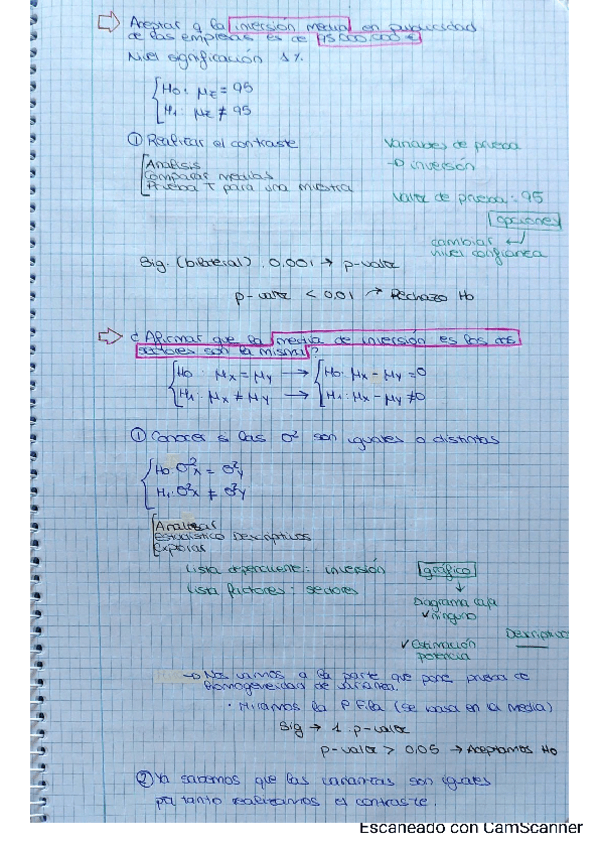 Aceptar q la inversión media en publicidad
de las empresas es de 95.000.000 €
Nivel significación 1%
H0: μz = 95
H1: μz ≠ 95
① Realizar el contraste
Analisis
Comparar medias
Prueba T para una muestra
Variables de prueba
→ inversión
Valor de prueba: 95
opciones
cambiar
nivel confianza
Sig. (bilateral) 0.001 → p-valor
p-valor < 0,01 → Rechazo H0
¿Afirmar que la media de inversión es los dos
sectores son la misma?
H0: μx = μy → H0: μx - μy = 0
H1: μx ≠ μy → H1: μx - μy ≠ 0
① Conocer si las σ² son iguales o distintas
H0: σ²x = σ²y
H1: σ²x ≠ σ²y
Analizar
Estadístico Descriptivos
Explorar
Lista dependiente: inversión
Lista factores: sectores
gráfico
Diagrama caja
✓ ninguno
✓ Estimación
potencia
Descriptivo
→ Nos vamos a la parte que pone prueba de
homogeneidad de varianza.
· Miramos la 1ª Fila (se basa en la media)
Sig → 1 p-valor
p-valor > 0,05 → Aceptamos H0
② Ya sabemos que las varianzas son iguales
por tanto realizamos el contraste.
Escaneado con CamScanner